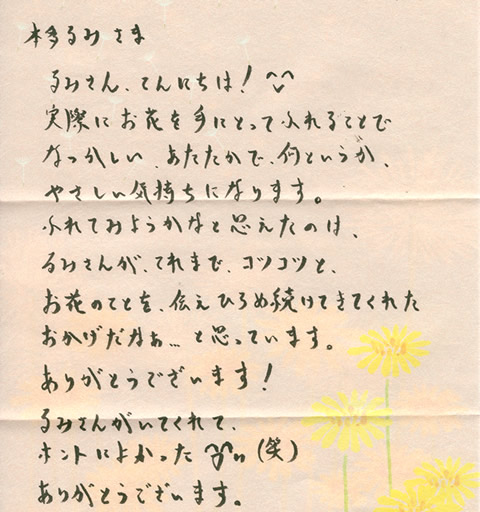 本多るみさま
るみさん、こんにちは！^^
実際にお花を手にとってふれることで
なつかしい、あたたかで、何というか、
やさしい気持ちになります。
ふれてみようかなと思えたのは、
るみさんが、これまで、コツコツと、
お花のことを、伝えひろめ続けてきてくれた
おかげだなぁ…と思っています。
ありがとうございます！
るみさんがいてくれて、
ホントによかった^^(笑)
ありがとうございます。